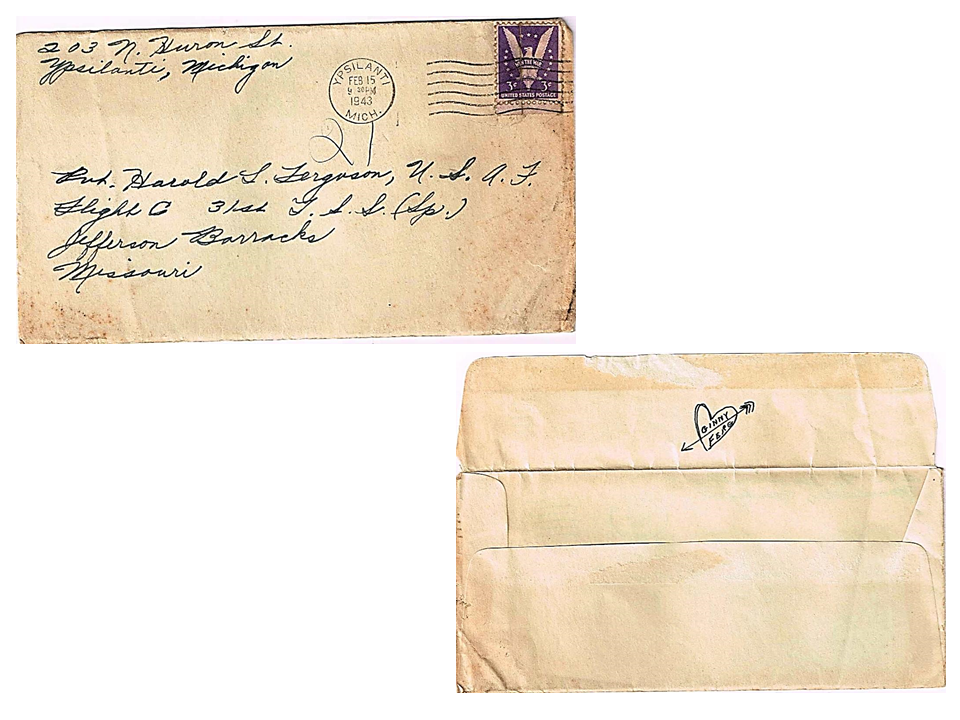 203 N. Huron St.
Ypsilanti, Michigan
YPSILANTI
FEB 15
1943
MICH.
WIN THE WAR
3¢ 3¢
UNITED STATES POSTAGE
21
Pvt. Harold L. Ferguson, U. S. A. F.
Flight C 31st T. S. S. (Sp.)
Jefferson Barracks
Missouri
GINNY
FERG